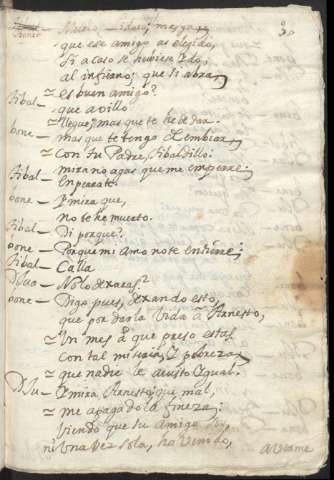 que ese amigo as elejido,
si a caso se hubiese ydo,
al infierno; que si abra
es buen amigo?
Tibal — que abillo
llegue; mas que te he de dar.
bone — mas que te tengo de embiar,
con tu Padre, Tibaldillo.
Tibal — mira no agas que me emperre.
bone — Enperrate.
Tibal — Y mira que,
bone — no te he muerto.
Tibal — Di porque?
bone — Porque mi amo no te entiere;
Tibal — Calla
DJua — No lo dexaras?
bone — Digo pues, dexando esto,
que por dar la vida a Arnesto,
Un mes a que preso estas
Con tal miseria, y pobreza,
que nadie le a visto ygual.
DJu — Y mira Arnesto, que mal,
me a pagado la fineza;
viendo que su amigo soy,
ni una vez sola, ha venido,
a verme